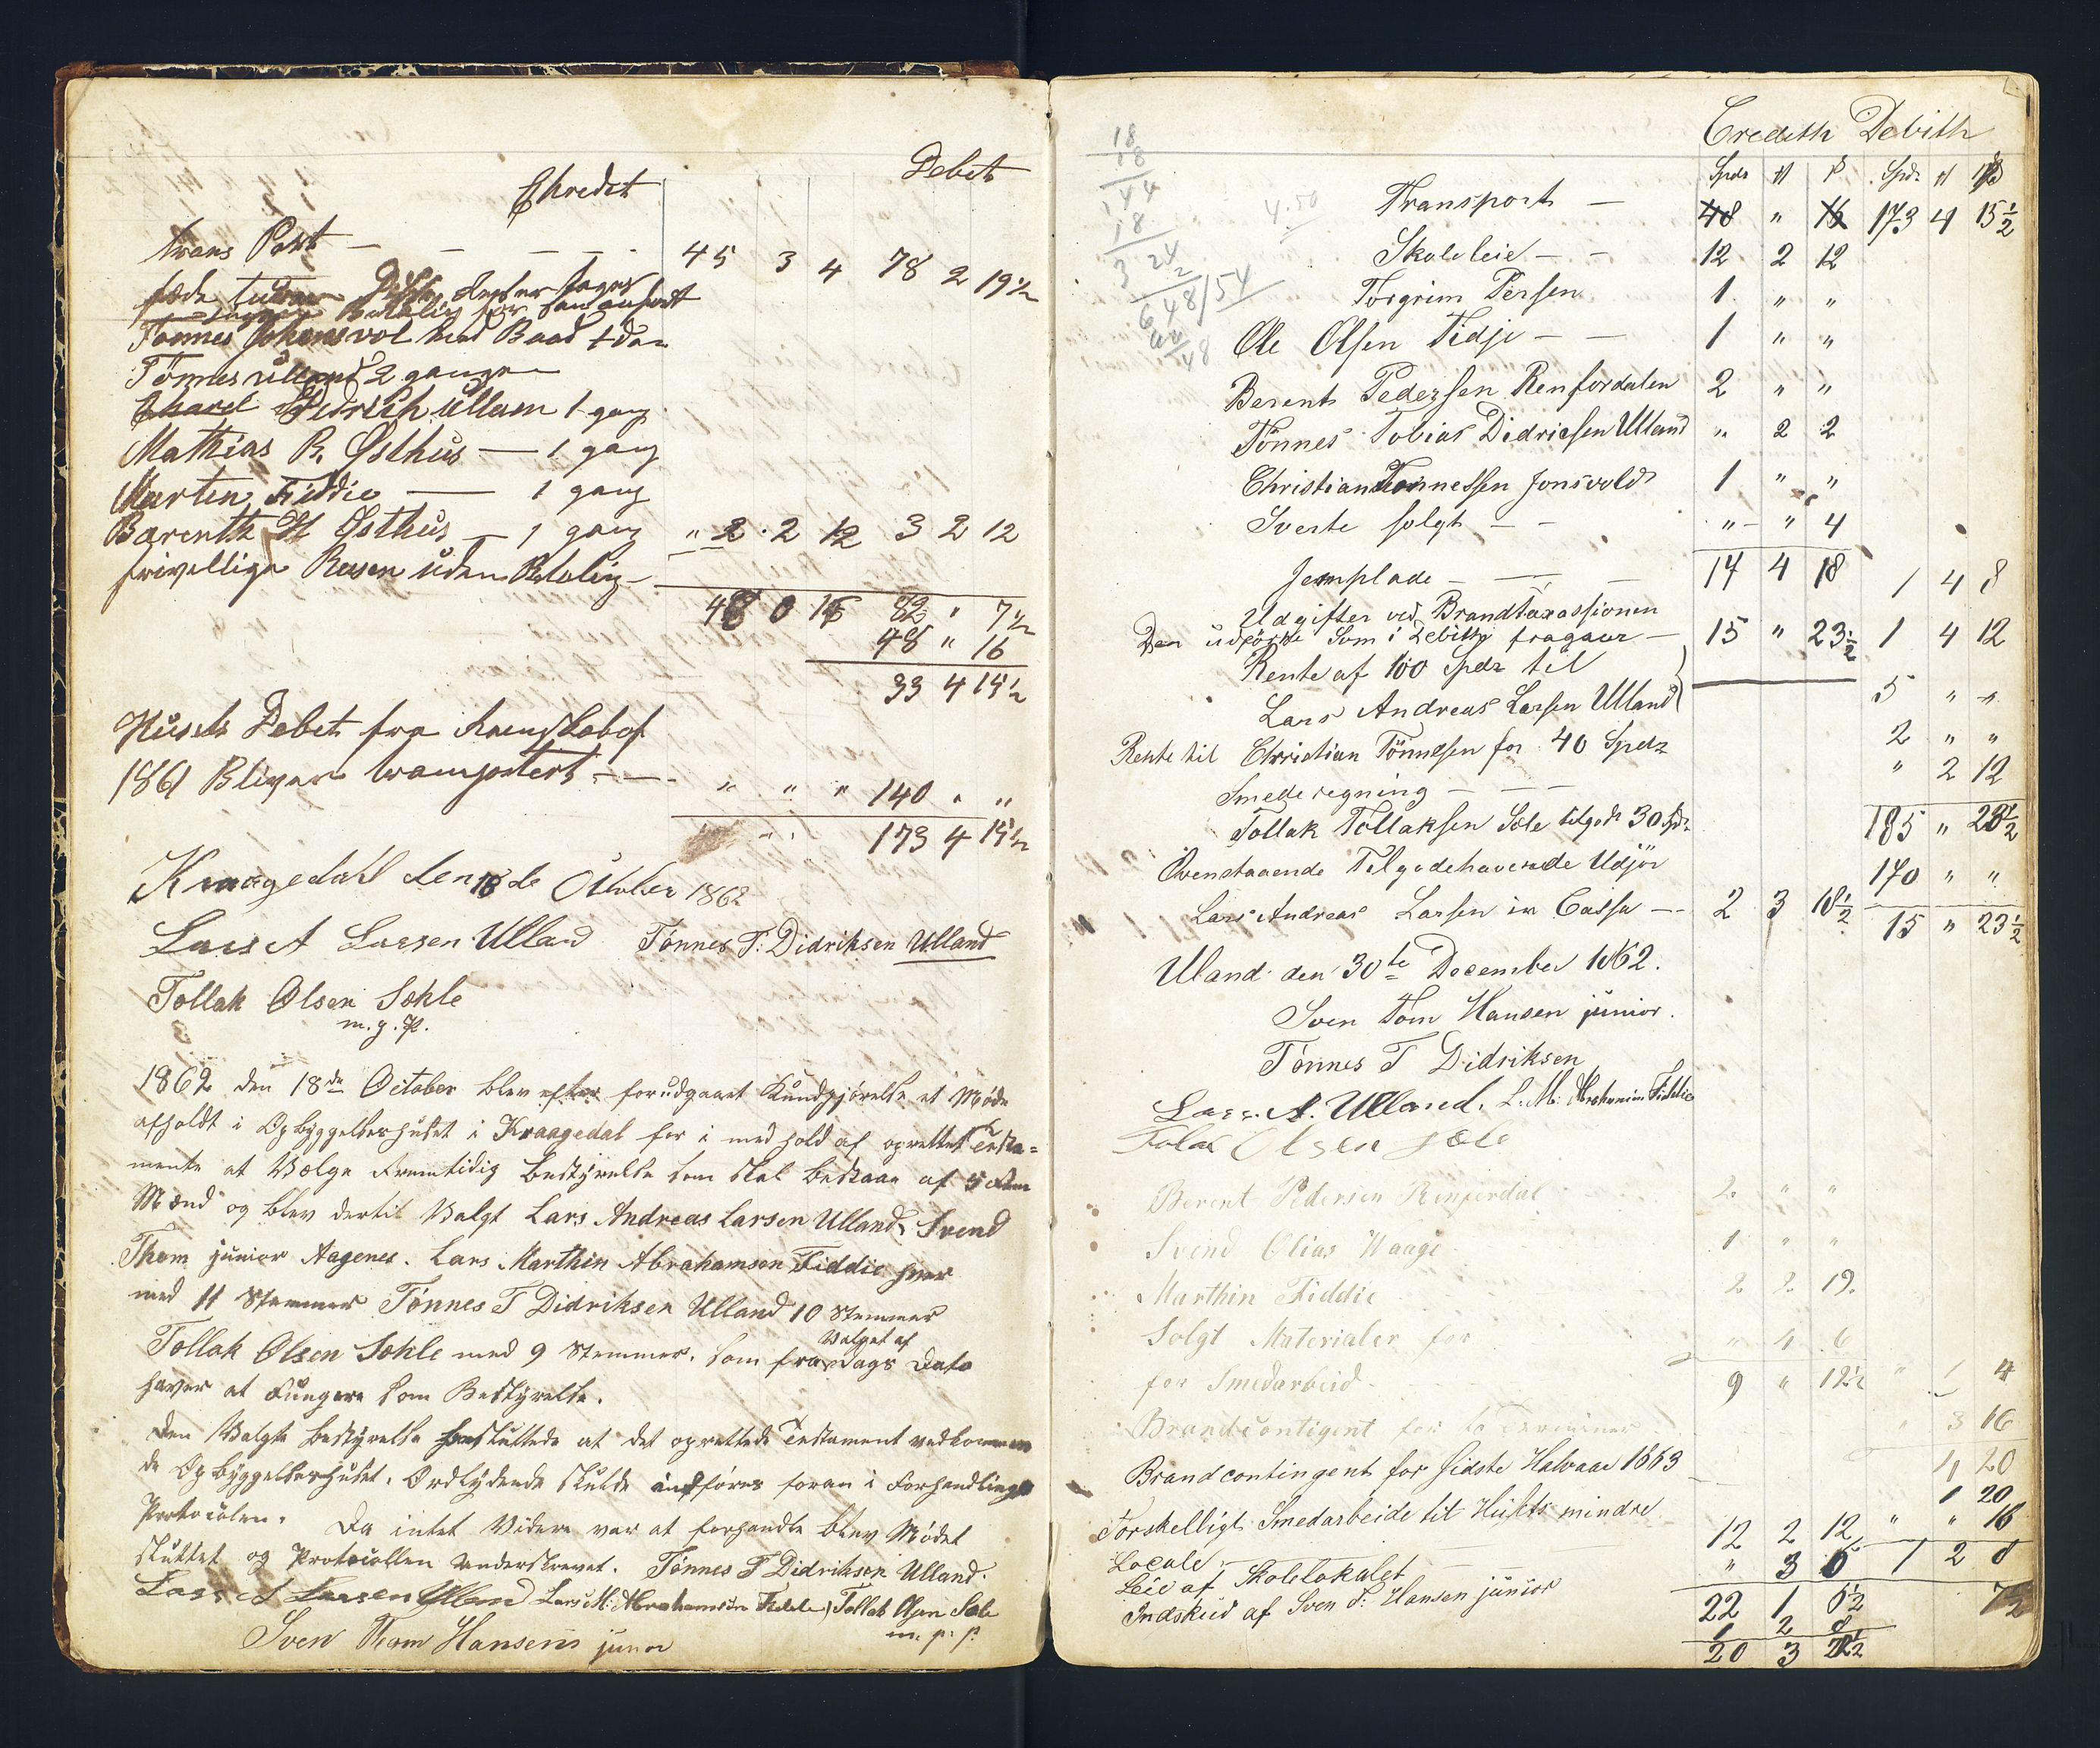 Chredet Debet
trans Port — — — — 45 3 4 78 2 19½
Tönnes Jonsvol med Baad
Tönnes Ulland 2 gange
Didrich Ullam 1 gang
Mathias R. Østhus — 1 gang
Marten Fiddie — 1 gang
Barenth H Østhus — 1 gang " 2 2 12 3 2 12
frivellige Reisen uden Betaling —
48 0 16 82 " 7½
48 " 16
33 4 15½
Husets Debet fra Regnskabet
1861 Bliver transportert — — " " " 140 " "
173 4 15½
Kraagedahl den 18de October 1862
Lars A Larsen Ulland Tönnes T. Didriksen Ulland
Tollak Olsen Sæhle
m. g. P.
1862 den 18de October blev efter forudgaaet Kundgjørelse et Møde
afholdt i Opbyggelseshuset i Kraagedal for i medhold af oprettet Testa=
mente at Vælge fremtidig bestyrelse som skal bestaae af 5 fem
Mænd og blev dertil Valgt Lars Andreas Larsen Ulland, Svend
Thom junior Aagenes. Lars Marthin Abrahamsen Fiddie hver
med 11 Stemmer Tönnes T Didriksen Ulland 10 Stemmer
Tollak Olsen Sæhle med 9 Stemmer, som fra Valget af Dags Dato
haver at fungere som Bestyrelse.
Den Valgte bestyrelse besluttede at det oprettede Testament vedkommen
de Opbyggelseshuset, Ordlydende skulde indføres foran i Forhandlings
Protocolen. Da intet Videre var at forhandle blev Mødet
sluttet og Protocollen underskrevet. Tönnes T Didriksen Ulland.
Lars A Larsen Ulland Lars M: Abrahamsen Fidde Tollak Olsen Sæle
m. p. p.
Sven Thom Hansens junior
Credith Debith
Spdr Spdr
Transport — 48 " 16 173 4 15½
Skoleleie — - 12 2 12
Torgrim Persen 1 " "
Ole Olsen Fidje — — 1 " "
Berent Pedersen Renfordalen 2 " "
Tönnes Tobias Didricsen Ulland " 2 2
Christian Tønnessen Jonsvold 1 " "
Sverte solgt — — " " 4
Jernplade — — — 14 4 18 1 4 8
Udgifter ved Brandtaxassionen
Den udførte Som i Debith fragaar — 15 " 23½ 1 4 12
Rente af 100 Spdr til
Lars Andreas Larsen Ulland 5 " "
Rente til Christian Tönnesen for 40 Spdr 2 " "
Smederegning — — — " 2 12
Tollak Tollaksen Sæle tilgode 30 Spdr 185 " 23½
Ovenstaaende Tilgodehavende Udgjør 170 " "
Lars Andreas Larsen in Cassa — - 2 3 18½ 15 " 23½
Uland den 30te December 1862.
Sven Tom Hansen junior.
Tönnes T Didriksen
Lars. A. Ulland. L. M: Abrahamsen Fiddie
Tolak Olsen Sæle
Berent Pedersen Renferdal 2 " "
Svend Elias Haage 1 " "
Marthin Fiddie 2 2 12
Solgt Materialer for " 4 6
for Smedarbeid 9 " 12½ " 1 4
Brandcontigent for to Terminer " 3 16
Brandcontingent for sidste Halvaar 1863 1 20
1 20
Forskelligt Smedarbeide til Husets mindre " " 16
Locale
Leie af Skolelokalet 12 2 12 1 2 8
Indskud af Sven T. Hansen junior " 3 6
22 1 6½ 7½
1 2 8
20 3 22½
18
18
144
18
324
2
648/54
4.50
48